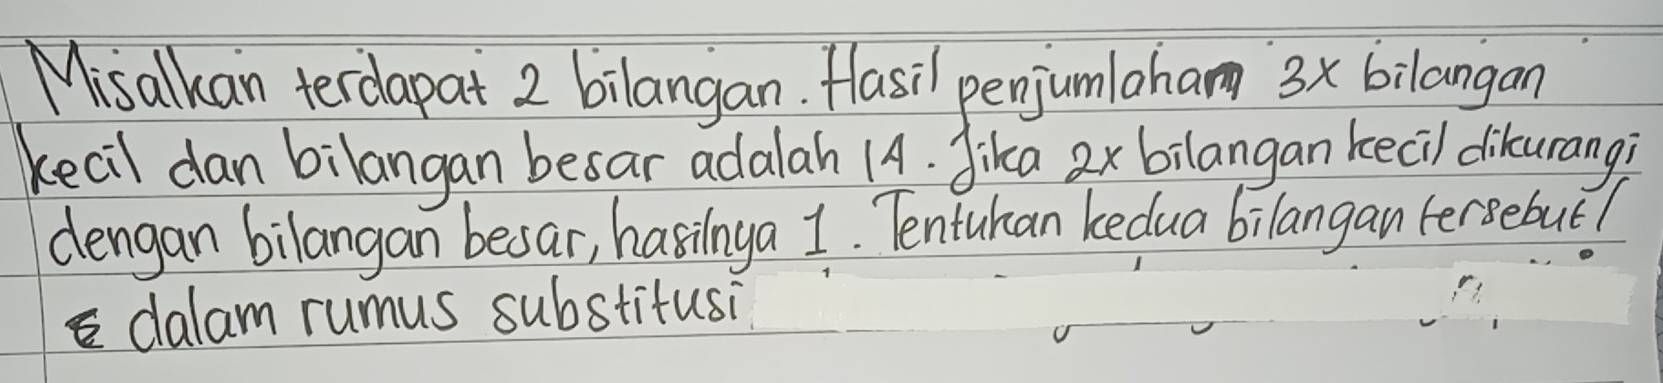 Misalkan terdapat 2 bilangan. Hasil penjumlahan 3x bilangan
kecil dan bilangan besar adalah 14. Jika 2x bilangan kecil dikurangi
dengan bilangan besar, hasilnya 1. Tentukan kedua bilangan tersebut!
dalam rumus substitusi